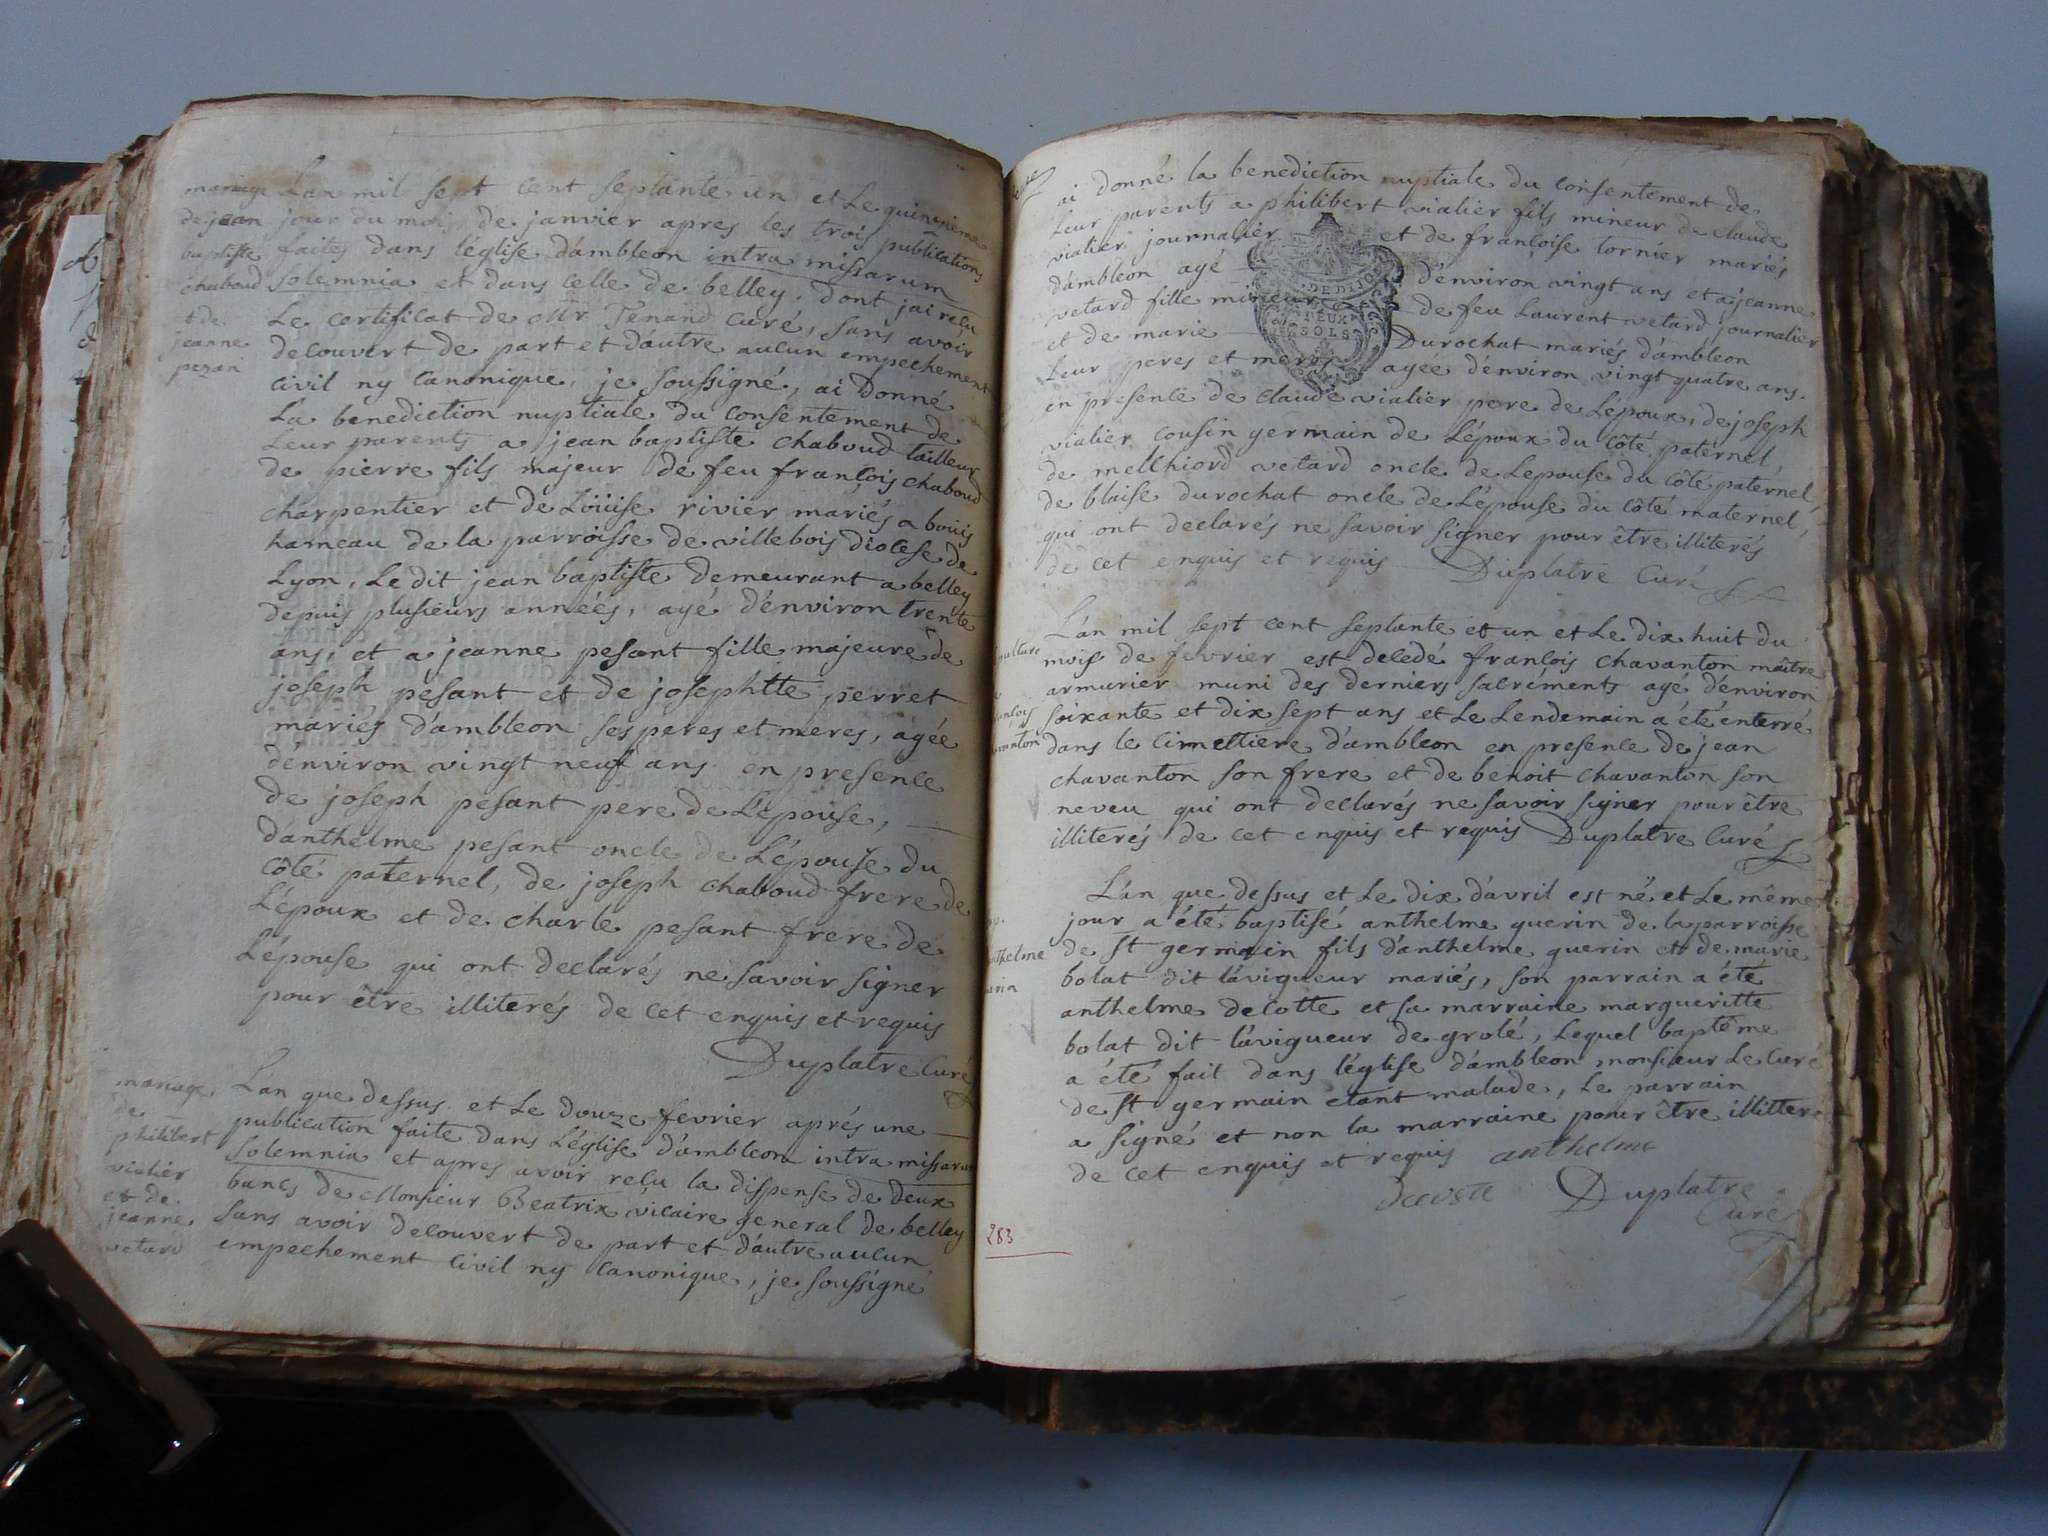 mariage
de jean
baptiste
chaboud
et de
jeanne
pezan
Lan mil sept cent septante un et Le quinzieme
jour du mois de janvier apres les trois publications
faites dans léglise d'ambleon intra missarum
solemnia et dans celle de belley, dont jai reçu
Le certificat de Mr Tenand curé, sans avoir
decouvert de part et d'autre aucun empechement
civil ny canonique, je soussigné, ai donné
La benediction nuptiale du consentement de
Leur parents a jean baptiste chaboud tailleur
de pierre fils majeur de feu françois chaboud
charpentier et de Loüise rivier mariés a bouis
hameau de la parroisse de villebois diocese de
Lyon, Le dit jean baptiste demeurant a belley
depuis plusieurs années, agé d'environ trente
ans, et a jeanne pesant fille majeure de
joseph pesant et de josephtte perret
mariés d'ambleon ses peres et meres, agée
d'environ vingt neuf ans en presence
de joseph pesant pere de L'épouse,
d'anthelme pesant oncle de L'épouse du
côté paternel, de joseph chaboud frere de
L'époux et de charle pesant frere de
L'épouse qui ont declarés ne savoir signer
pour être illiterés de cet enquis et requis
Duplatre Curé
mariage
de
philibert
vialier
et de
jeanne
vetard
L'an que dessus et Le douze fevrier aprés une
publication faite dans L'église d'ambleon intra missarum
solemnia et apres avoir reçu la dispense de deux
bancs de Monsieur Beatrix vicaire general de belley
sans avoir decouvert de part et d'autre aucun
empechement civil ny canonique, je soussigné
ai donné la benediction nuptiale du consentement de
Leur parents a philibert vialier fils mineur de claude
vialier journalier et de françoise tornier mariés
d'ambleon agé d'environ vingt ans et a jeanne
vetard fille mineure de feu Laurent vetard journalier
et de marie Durochat mariés d'ambleon
Leur peres et meres agée d'environ vingt quatre ans.
en presence de claude vialier pere de L'époux, de joseph
vialier cousin germain de L'époux du côté paternel,
de melchiord vetard oncle de Lepouse du côté paternel,
de blaise durochat oncle de L'épouse du côté maternel,
qui ont declarés ne savoir signer pour être illiterés
de cet enquis et requis Duplatre Curé
DE DIJON
DEUX
SOLS
L'an mil sept cent septante et un et Le dix huit du
mois de fevrier est decedé françois chavanton maître
armurier muni des derniers sacréments agé d'environ
soixante et dix sept ans et Le Lendemain a été enterré
dans le cimettiere d'ambleon en presence de jean
chavanton son frere et de benoit chavanton son
neveu qui ont declarés ne savoir signer pour être
illiterés de cet enquis et requis Duplatre Curé
L'an que dessus et Le dix d'avril est né et Le même
jour a été baptisé anthelme guerin de la parroisse
de St germain fils d'anthelme guerin et de marie
bolat dit lavigueur mariés, son parrain a été
anthelme decotte et sa marraine margueritte
bolat dit lavigueur de grolé, Lequel baptême
a été fait dans léglise d'ambleon monsieur Le Curé
de St germain etant malade, Le parrain
a signé et non la marraine pour être illitteré
de cet enquis et requis anthelme
decoste Duplatre
Curé
283